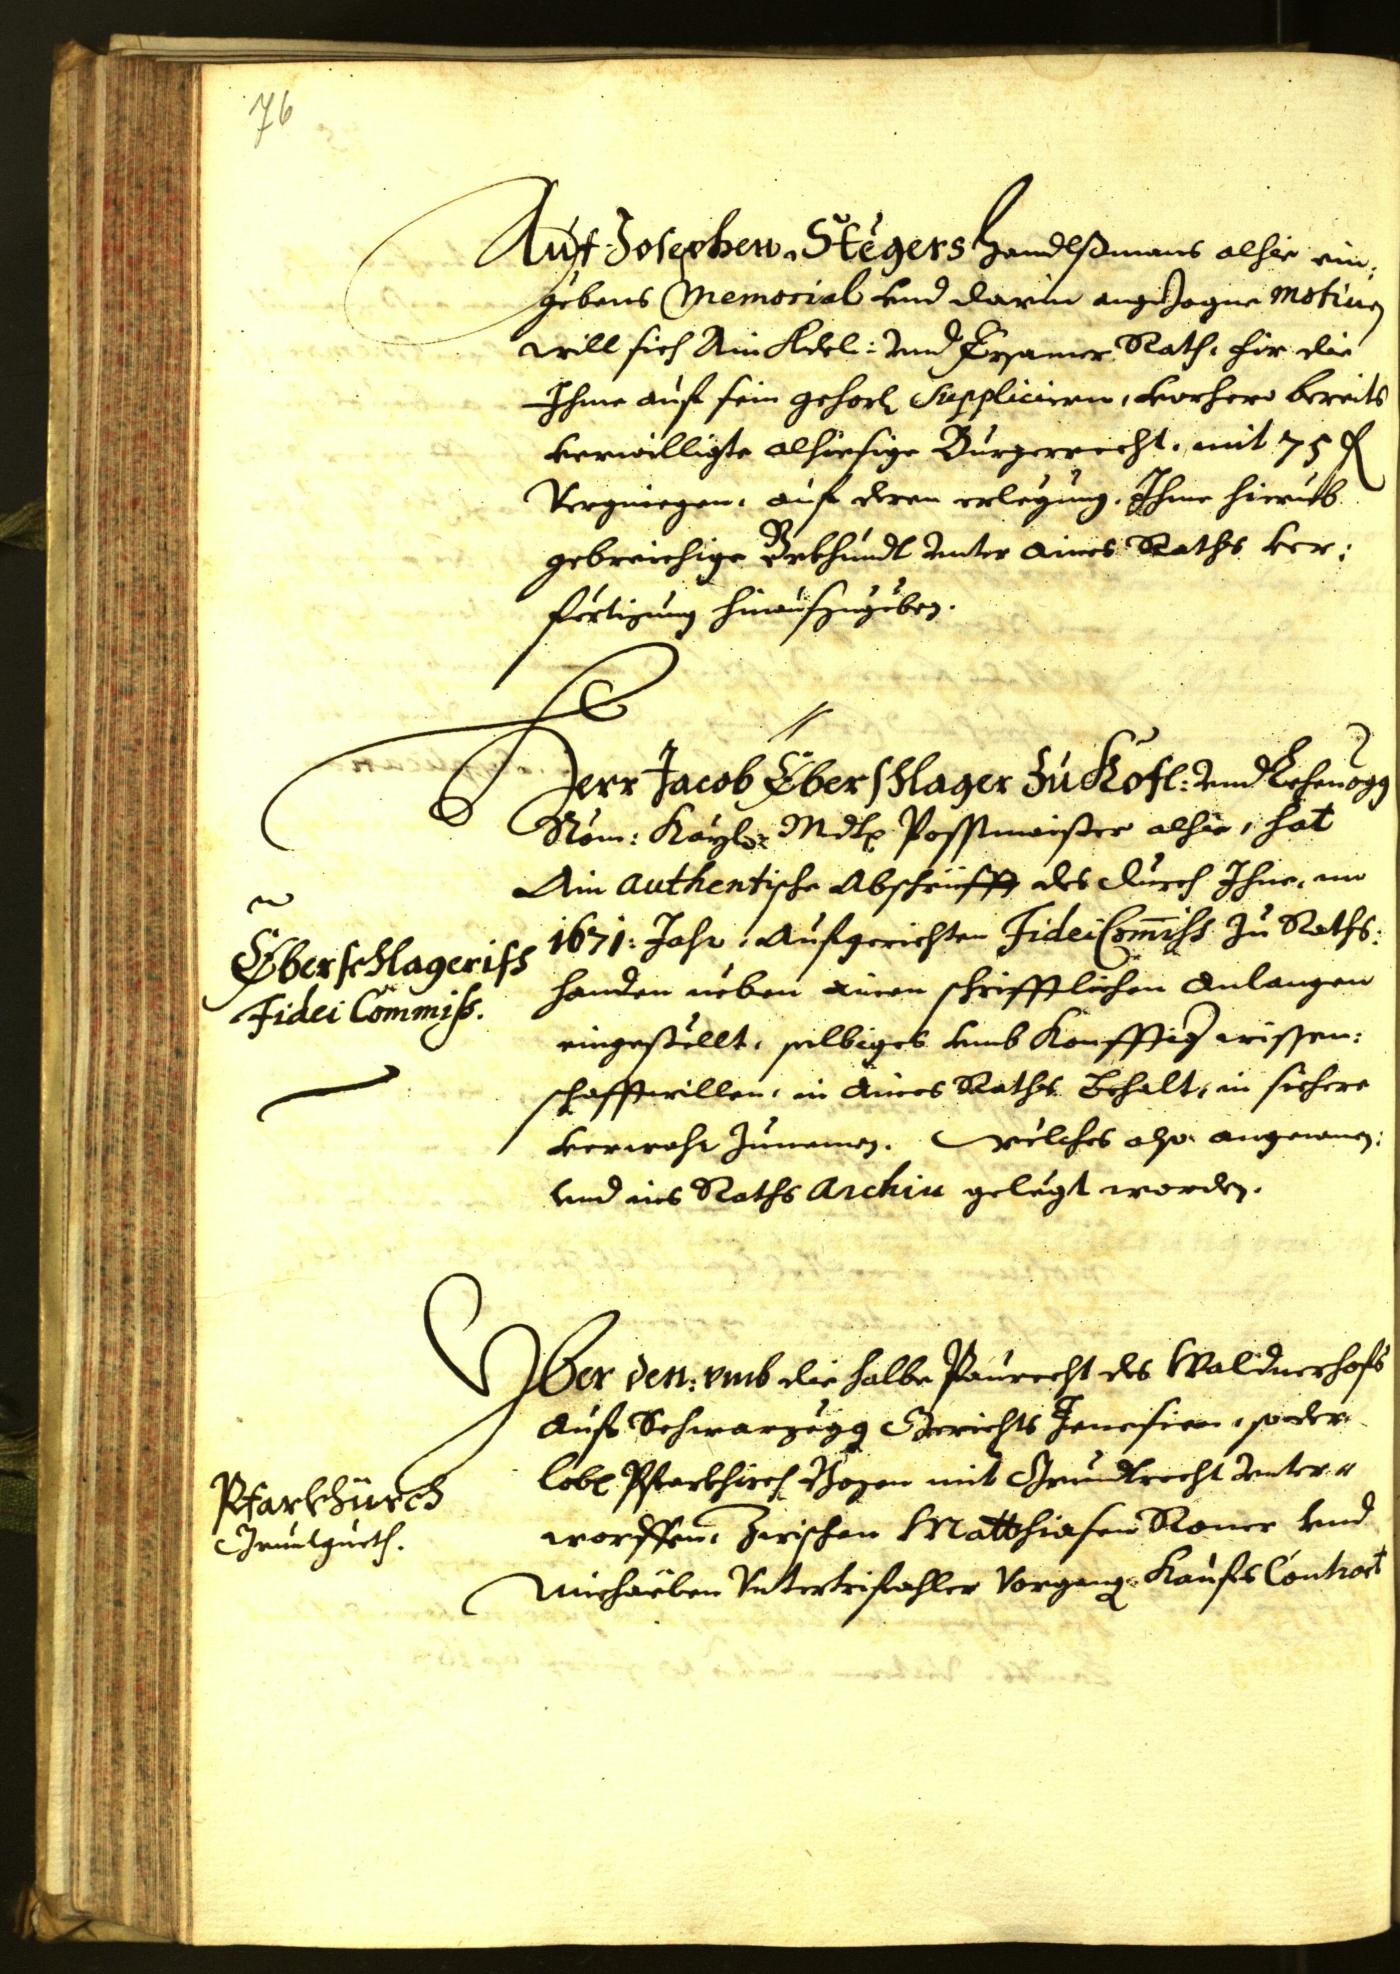 76
Auf Josephen Stegers Handlßmans alhie ein:
gebens Memorial vnd darin angezogne motiuen
will sich Ain Edel: vnd Ersamer Rath, fir die
Ihme auf sein gehors Suppliciern, vorhero bereits
verwilligte alhiesige Burgerrecht, mit 75 fl
Vergniegen, auf deren erlegung, Ihme hierumb
gebreichige Vrkhundt vnter aines Raths ver:
fertigung hinaußzugeben.
Herr Jacob Überschlager zu Kofl: vnd Lehenegg
Röm: Kayl: Mdt Posstmaister alhie, hat
Ain authentische Abschrifft des durch Ihne, im
1671: Jahr, Aufgerichten Fidei Commiss zu Raths:
handen neben ainen schrifftlichen Anlangen
eingestellt, selbiges vmb Konfftig wissen:
schafftwillen, in Aines Raths Behalt, in sichere
verwahr zunemen. Welches also angenomen:
vnd ins Raths Archiu gelegt worden.
Überschlagerisch
Fidei Commiß.
Vber den: vmb die halbe Paurecht des Waldnerhofs
aufs Schwarzegg Gerichts Jenesien, so der
lobl Pfarkhirch Bozen mit Grundtrecht vnter„
worffen, Zwischen Matthiasen Roner vnd
Michaëlen Vntertrifahler Vorgang Kaufs Contract
Pfarkhürch
Grundtgueth.